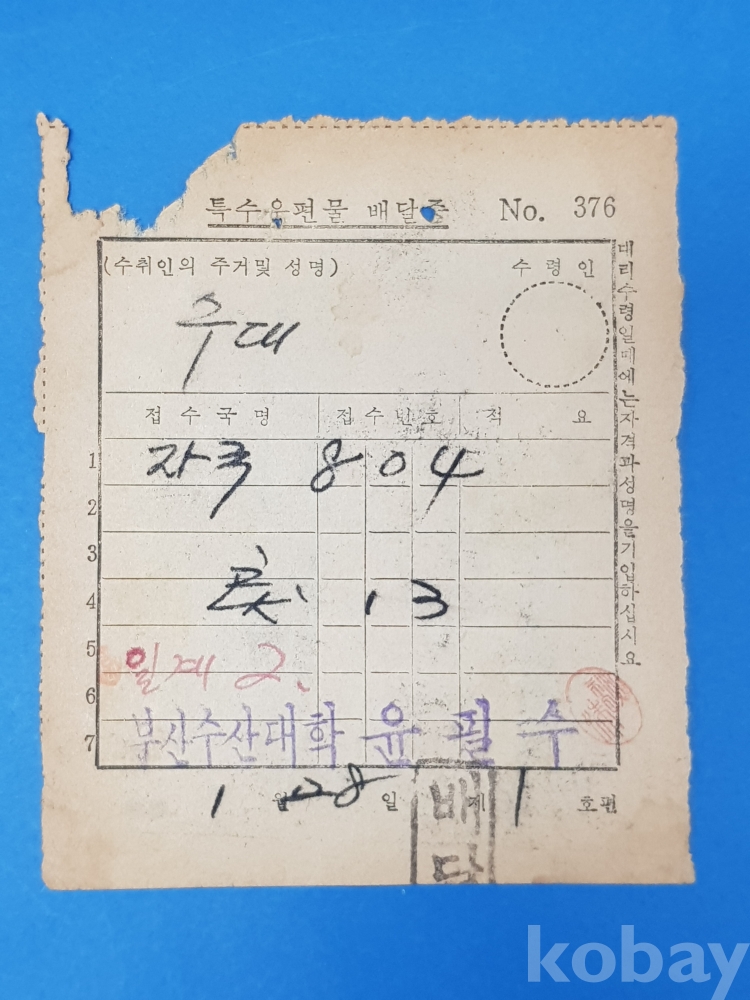 특수우편물 배달증 No. 376
(수취인의 주거및 성명) 수령인
수대
접수국명 접수번호 적요
1 자국 804
2
3
4 13
5 일계 2.
6
7 부산수산대학 윤필수
1월 28일 제1호편
배달
대리수령일때에는자격과성명을기입하십시요
kobay